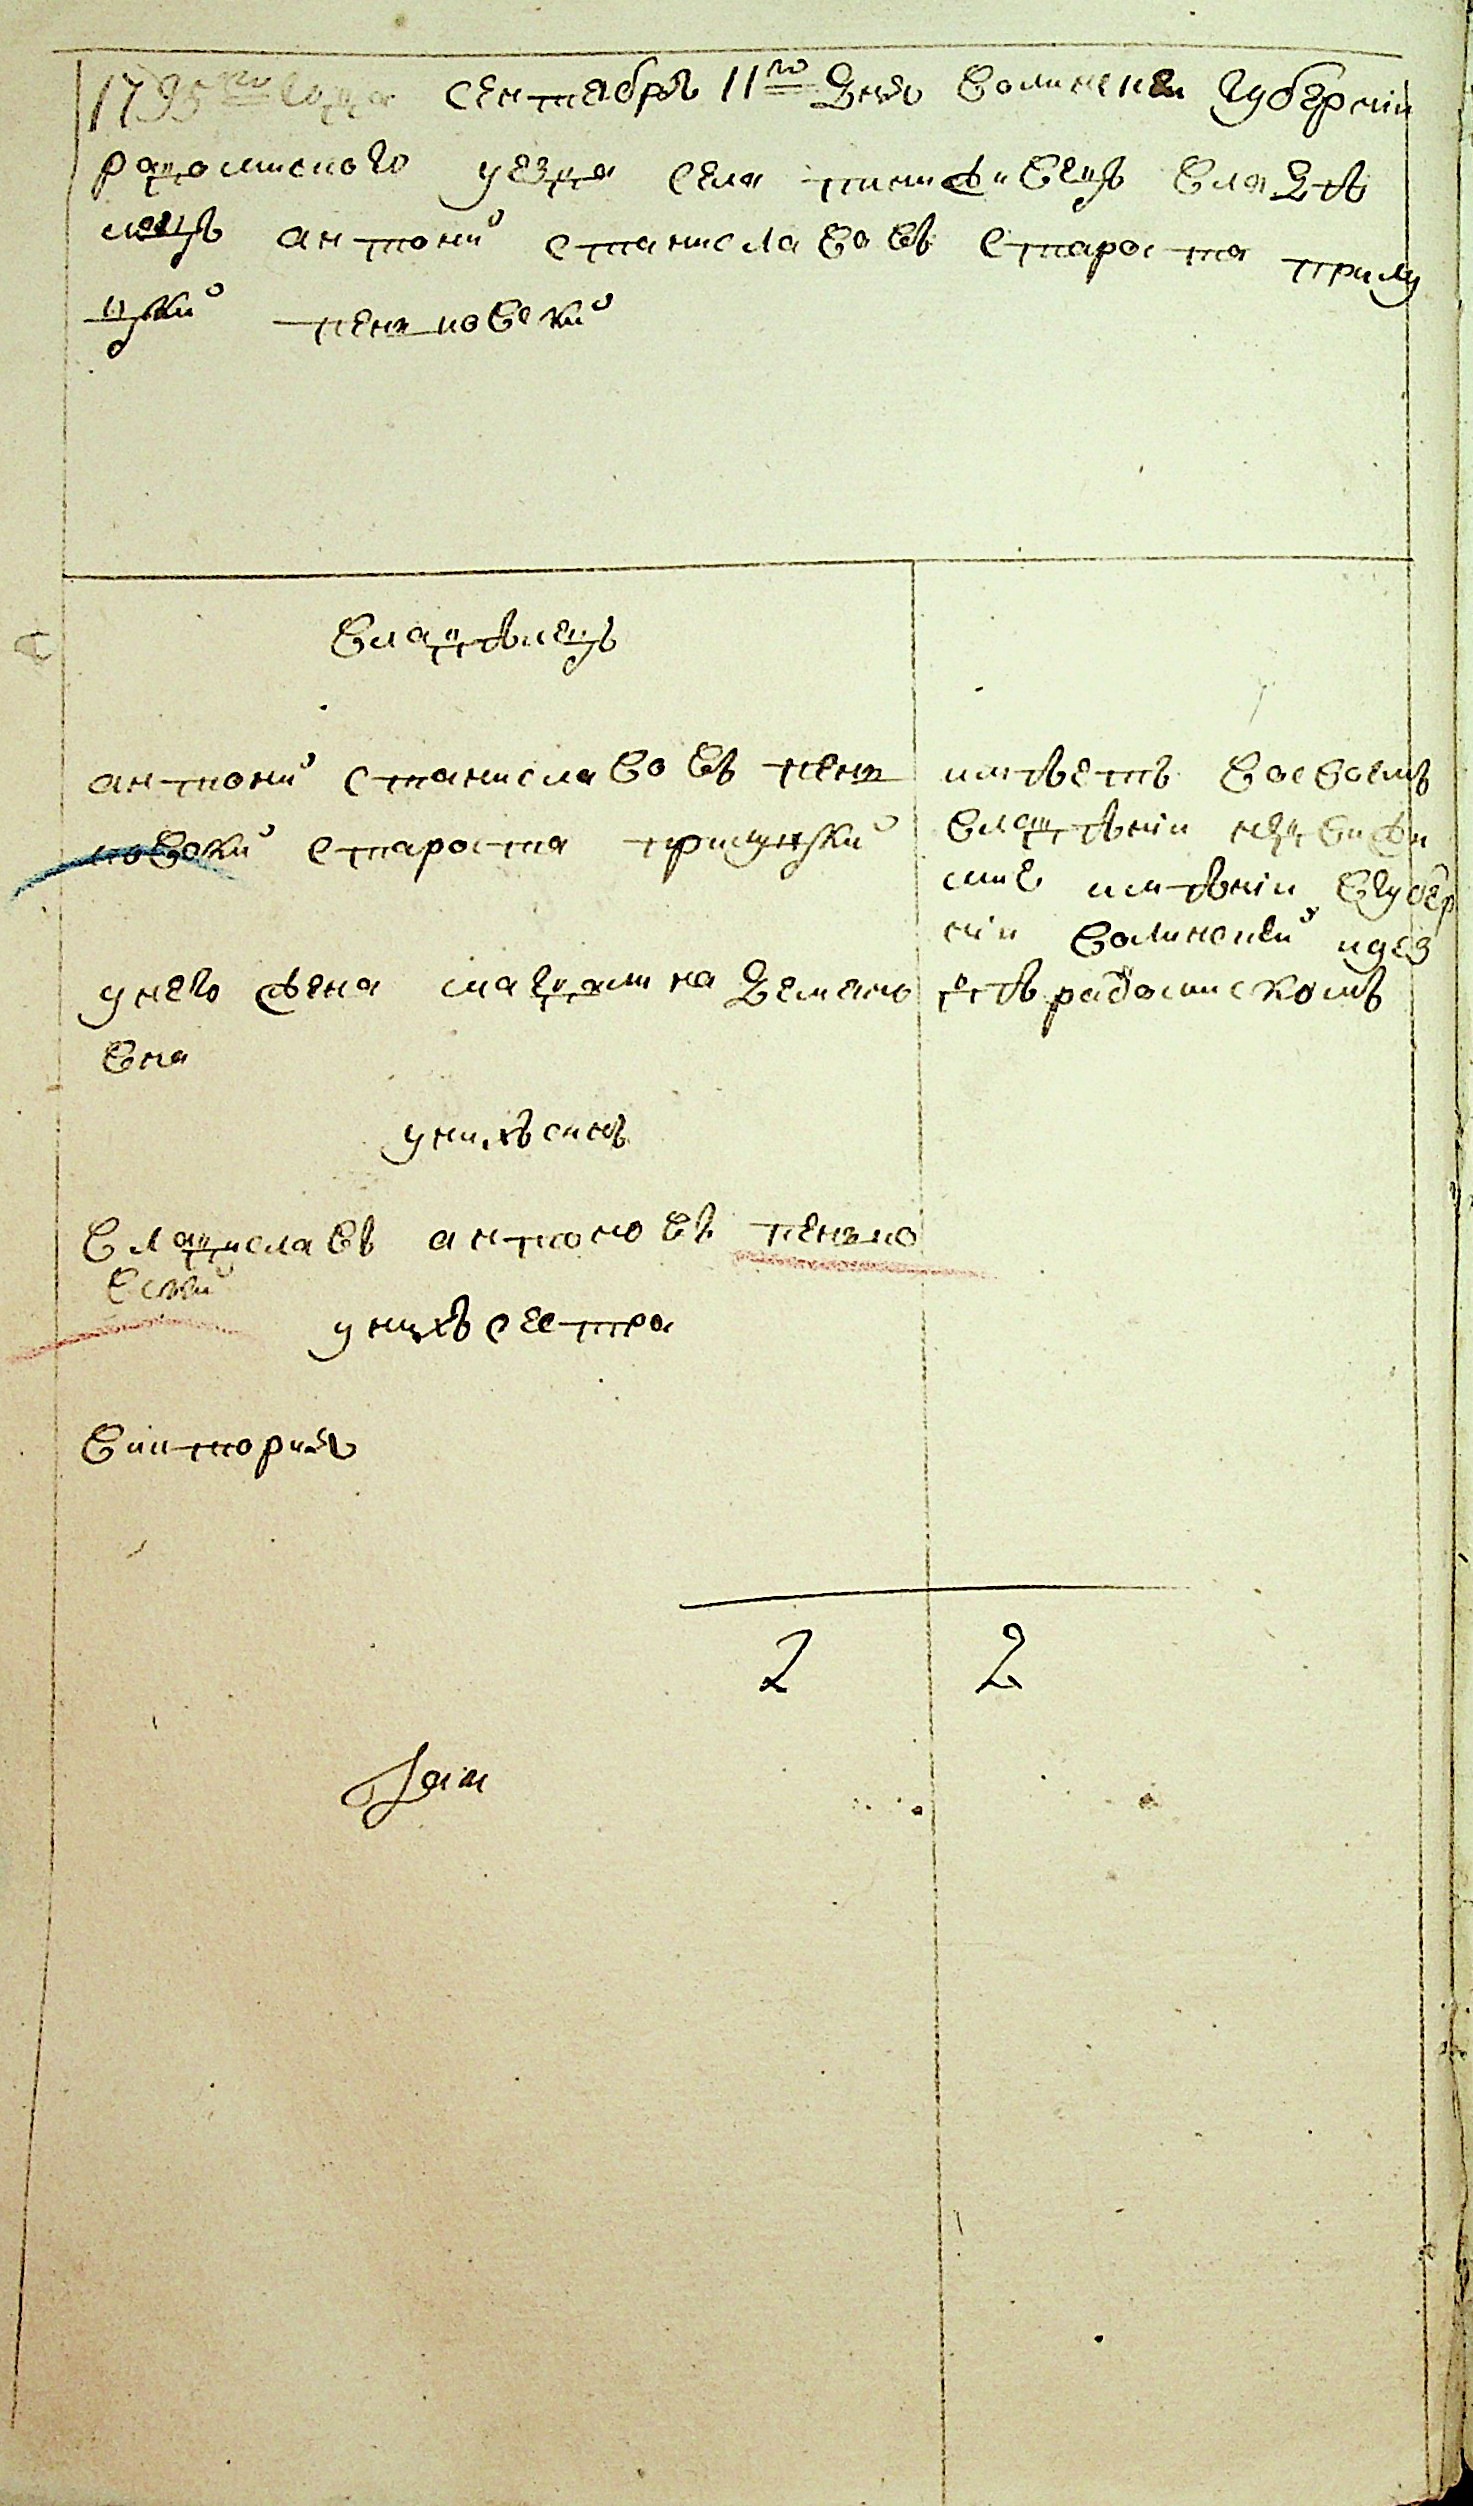 1795го года сентебря 11го дня волинскеи губернии
радомиского уезда села владѣ
лецъ антоний станиславовъ староста прилу
цкий пеньковский
владѣлецъ
антоний станиславовъ пень
ковский староста прилуцкий
у него жена магдалина
вна
у нихъ синъ
владиславъ антоновъ пенько
вский
у нихъ сестра
виктория
имѣетъ во своемъ
владѣнии недвижи
мие имѣнии в губер
нии волинской и уез
дѣ радомискомъ
2 2